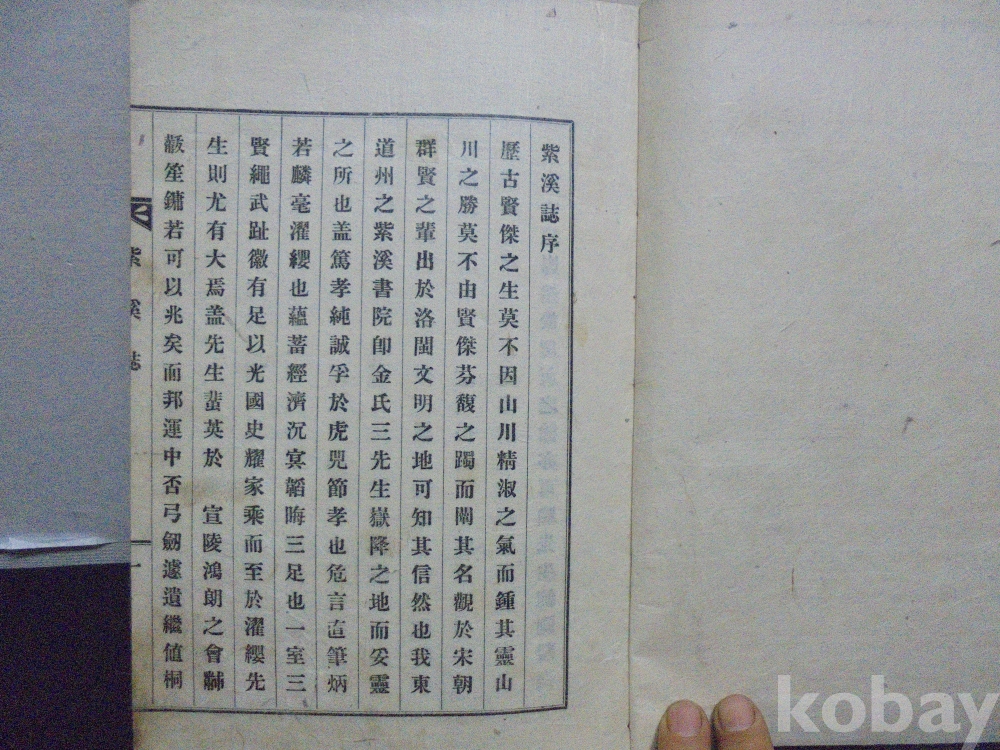 紫溪誌序
歷古賢傑之生莫不因山川精淑之氣而鍾其靈山
川之勝莫不由賢傑芬馥之躅而闡其名觀於宋朝
群賢之輩出於洛閩文明之地可知其信然也我東
道州之紫溪書院卽金氏三先生嶽降之地而妥靈
之所也盖篤孝純誠孚於虎兕節孝也危言直筆炳
若麟毫濯纓也蘊蓄經濟沉冥韜晦三足也一室三
賢繩武趾徽有足以光國史耀家乘而至於濯纓先
生則尤有大焉盖先生蜚英於 宣陵鴻朗之會黼
黻笙鏞若可以兆矣而邦運中否弓劒遽遺繼値桐
紫溪誌
一
kobay